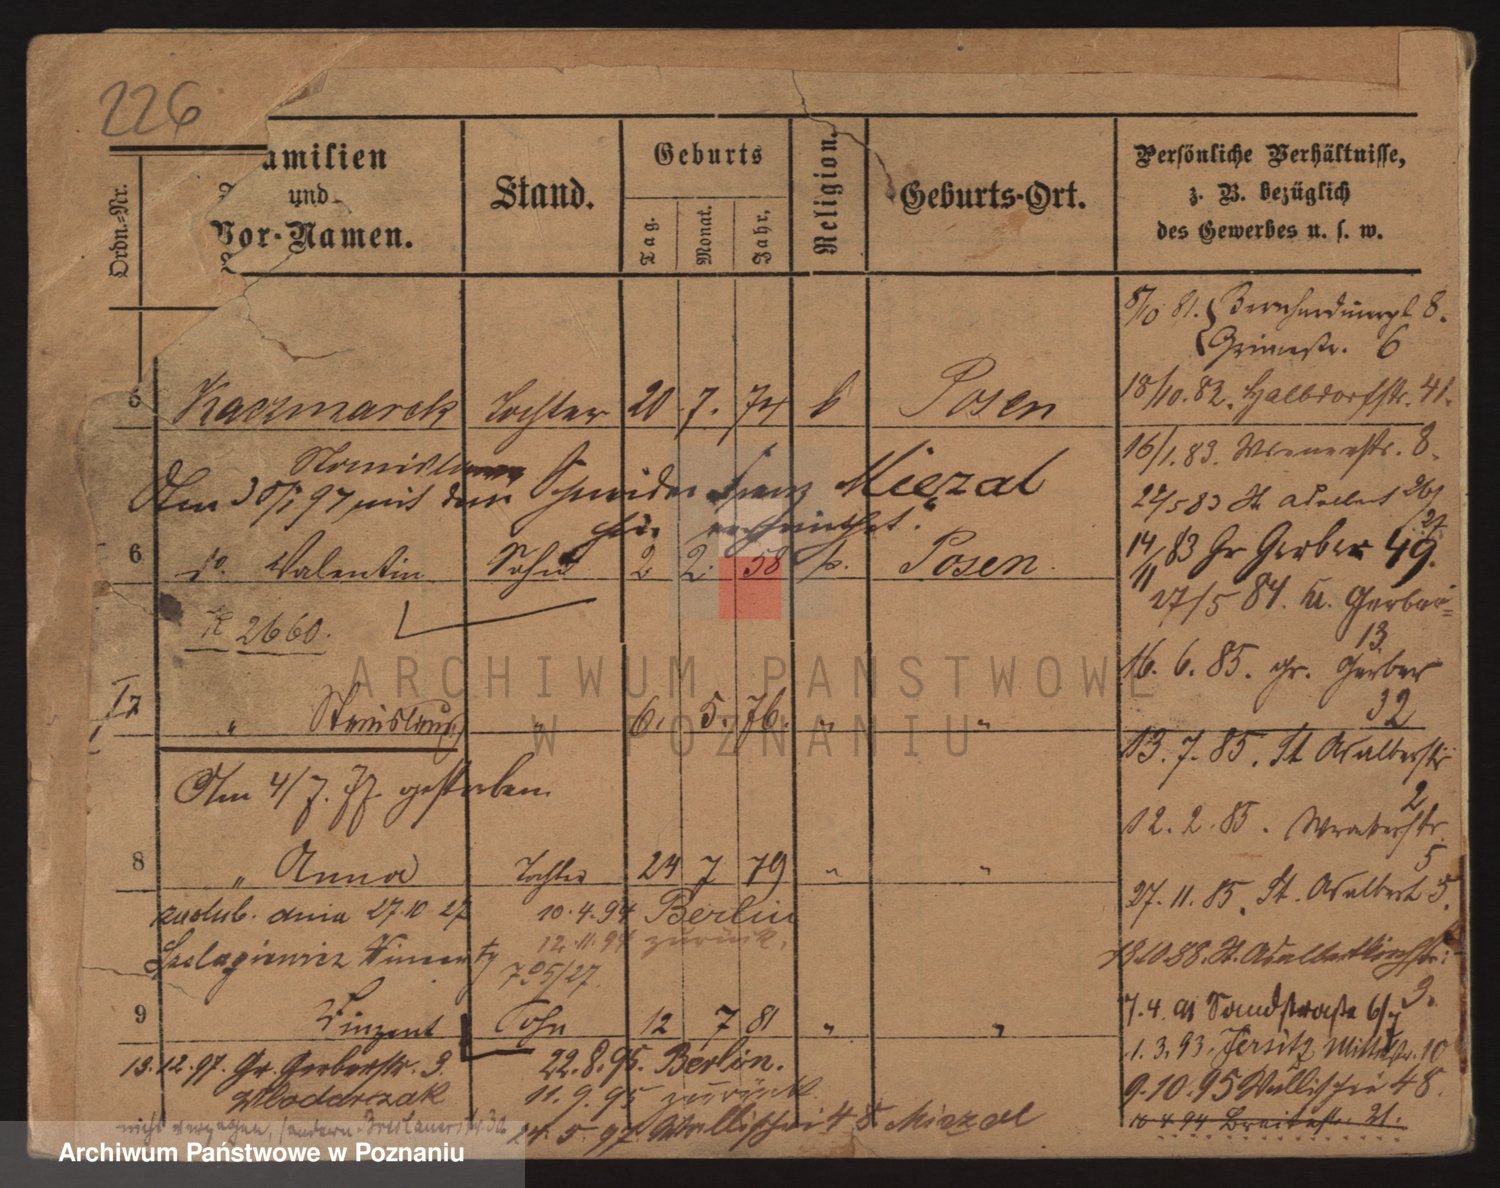 226
Ordn.=Nr.
amilien
und
Vor-Namen.
Stand.
Geburts
Tag.
Monat.
Jahr.
Religion.
Geburts-Ort.
Persönliche Verhältnisse,
z. B. bezüglich
des Gewerbes u. s. w.
8/10 81. Bernhardinerpl. 8.
6
5 Kaczmarek Tochter 20 7. 74 k Posen
18/10. 82. Halbdorfstr. 41.
Stanislawa
Am 30/1 97 mit dem Schneider Franz Miezal
hier verheirathet.
16/1. 83. 8.
27/5 83 St Adalbert 26/27
6 do. Valentin Sohn 2 2. 58 k. Posen.
14/11 83 Gr Gerber 49.
27/5 84. kl. Gerber=
13.
K 2660.
16. 6. 85. gr. Gerber
32
7 " Stanislaus " 6. 5. 76. " "
13. 7. 85. St Adalbertstr
2
Am 4/7. 77. gestorben.
12. 2. 85.
5
8 " Anna Tochter 24 7 79 " "
27. 11. 85. St. Adalbert 5.
zaślub. dnia 27.10 27
10. 4. 94 Berlin
12. 11. 94 zurück.
Szelagiewicz Wincenty
705/27.
18.10.88. St. Adalbertkirchstr:
3.
9 Vinzent Sohn 12 7 81 " "
7. 4. 91 Sandstraße 6/7
1. 3. 93. Jersitz Mittelstr. 10
13. 12. 97. Gr. Gerberstr. 3.
22. 8. 95. Berlin.
Wlodarczak
11. 9. 95 zurück
9. 10. 95 Wallischei 48.
nicht verzogen, sondern Breslauerstr. 30
24. 5. 97. Wallischei 48 Miezal
10 4 94 Breitestr 21.
ARCHIWUM PAŃSTWOWE
W POZNANIU
Archiwum Państwowe w Poznaniu